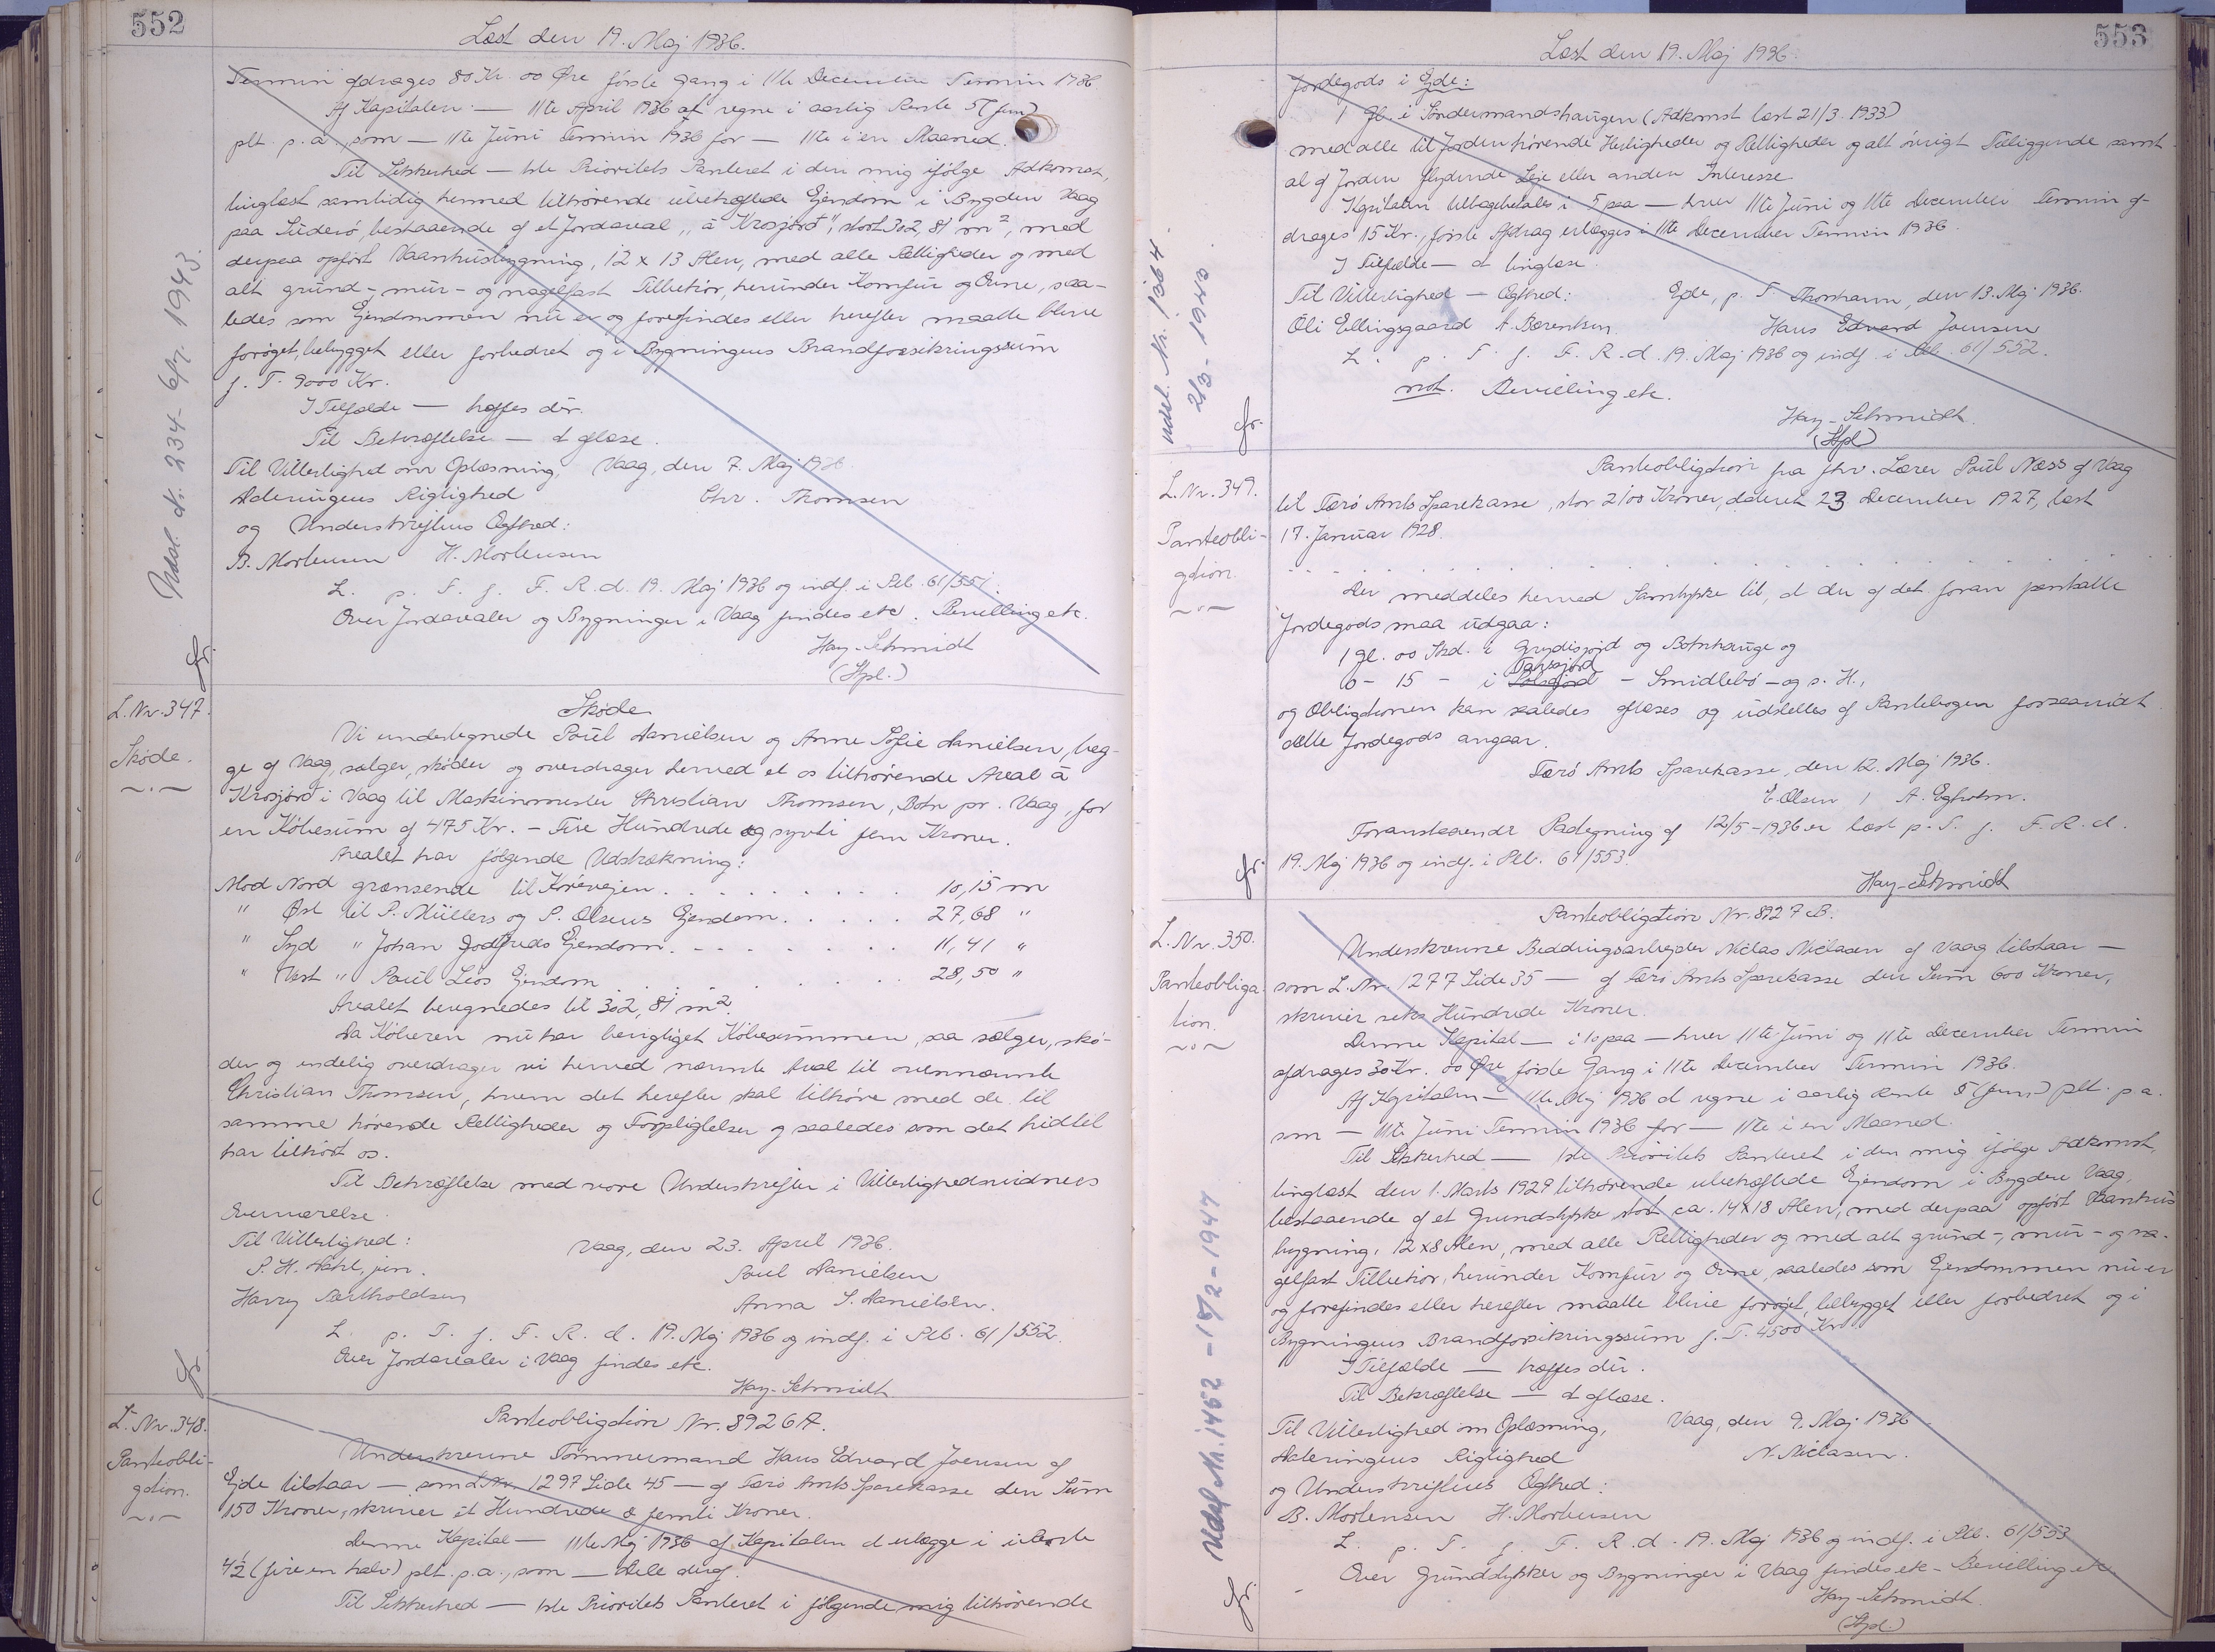 552
Læst den 19. Maj 1936.
Termin afdrages 80 Kr. 00 Øre første Gang i 11te December Termin 1936
Af Kapitalen — 11te April 1936 at regne i aarlig Rente 5 (fem)
plt. p. a., som — 11te Juni Termin 1936 for — 11te i en Maaned.
Til Sikkerhed — 1ste Prioritets Panteret i den mig ifølge Adkomst,
tinglæst samtidig hermed tilhørende ubehæftede Ejendom i Bygden Vaag
paa Suderø, bestaaende af et Jordareal "á Krosjørð", stort 302,81 m², med
derpaa opført Vaaanhusbygning, 12 x 13 Alen, med alle Rettigheder og med
alt grund- mur- og nagelfast Tilbehør, herunder Komfur og Ovne, saa-
ledes som Ejendommen nu er og forefindes eller herefter maatte blive
forøget, bebygget eller forbedret og i Bygningens Brandforsikringssum
p. T. 9000 Kr.
I Tilfælde — træffes dèr.
Til Bekræftelse — at aflæse.
Til Vitterlighed om Oplæsning, Vaag, den 7. Maj 1936
Dateringens Rigtighed Chr. Thomsen
og Underskriftens Ægthed:
B. Mortensen H. Mortensen
L. p. T. f. F. R. d. 19. Maj 1936 og indf. i Ptb. 61/551.
Over Jordarealer og Bygninger i Vaag findes etc. Bevilling etc.
Hay-Schmidt
(Stpl.)
Udsl. Nr. 234 - 6/7. 1943.
fr.
L. Nr. 347.
Skøde.
Skøde
Vi undertegnede Poul Danielsen og Anne Sofie Danielsen, beg-
ge af Vaag, sælger, skøder og overdrager herved et os tilhørende Areal á
Krosjørð i Vaag til Maskinmester Christian Thomsen, Botn pr. Vaag, for
en Købesum af 475 Kr. - Fire Hundrede og syvti fem Kroner.
Arealet har følgende Udstrækning:
Mod Nord grænsende til Kørevejen . . . . . . . . . 10,15 m
" Øst til P. Müllers og P. Olsens Ejendom . . . . . 27,68 "
" Syd " Johan Godtfreds Ejendom . . . . . . . . 11,41 "
" Vest " Poul Leos Ejendom . . . . . . . . . 28,50 "
Arealet beregnedes til 302,81 m².
Da Køberen nu har berigtiget Købesummen, saa sælger, skø-
der og endelig overdrager vi herved nævnte Areal til ovennævnte
Christian Thomsen, hvem det herefter skal tilhøre med de til
samme hørende Rettigheder og Forpligtelser og saaledes som det hidtil
har tilhørt os.
Til Bekræftelse med vore Underskrifter i Vitterlighedsvidners
Overværelse.
Til Vitterlighed: Vaag, den 23. April 1936.
P. H. Dahl, jun. Poul Danielsen
Harry Bertholdsen Anna S. Danielsen.
L. p. T. f. F. R. d. 19. Maj 1936 og indf. i Ptb. 61/552.
Over Jordarealer i Vaag findes etc.
Hay-Schmidt
fr.
L. Nr. 348.
Panteobli-
gation.
Panteobligation Nr. 8926 A.
Underskrevne Tømmermand Hans Edvard Joensen af
Ejde tilstaar — som L. Nr. 1297 Side 45 — af Færø Amts Sparekasse den Sum
150 Kroner, skriver èt Hundrede & femti Kroner.
Denne Kapital — 11te Maj 1936 af Kapitalen at erlægge i Rente
4½ (fire en halv) plt. p. a., som — Dele deraf.
Til Sikkerhed — 1ste Prioritets Panteret i følgende mig tilhørende
553
Læst den 19. Maj 1936.
Jordegods i Ejde:
1 Gl. i Søndermandshaugen (Adkomst læst 21/3. 1933)
med alle til Jorden hørende Herligheder og Rettigheder og alt øvrigt Tilliggende samt
al af Jorden flydende Leje eller anden Interesse.
Kapitalen tilbagebetales i 5 paa — hver 11te Juni og 11te December Termin af-
drages 15 Kr., første Afdrag erlægges i 11te December Termin 1936.
I Tilfælde — at tinglæse.
Til Vitterlighed — Ægthed: Ejde, p. T. Thorshavn, den 13. Maj 1936.
Oli Ellingsgaard A. Berentsen. Hans Edvard Joensen
L. p. T. f. F. R. d. 19. Maj 1936 og indf. i Ptb. 61/552.
not. Bevilling etc.
Hay-Schmidt.
(Stpl)
Udsl. Nr. 1364.
2/3 - 1943.
fr.
L. Nr. 349.
Panteobli-
gation.
Panteobligation fra fhv. Lærer Poul Næss af Vaag
til Færø Amts Sparekasse, stor 2100 Kroner, dateret 23 December 1927, læst
17. Januar 1928.
Der meddeles herved Samtykke til, at der af det foran pantsatte
Jordegods maa udgaa:
1 Gl. 00 Skd. i Grydisjøjd og Botnhauge og
Tarvsjord
0 - 15 - i - Smidlebø - og s. H.,
og Obligationen kan saaledes aflæses og udslettes af Pantebogen forsaavidt
dette Jordegods angaar.
Færø Amts Sparekasse, den 12. Maj 1936.
E. Olsen / A. Egholm.
Foranstaaende Paategning af 12/5-1936 er læst p. T. f. F. R. d.
19. Maj 1936 og indf. i Ptb. 61/553.
Hay-Schmidt
fr.
L. Nr. 350.
Panteobliga
tion.
Panteobligation Nr. 8927 B.
Underskrevne Beddingsarbejder Niclas Niclasen af Vaag tilstaar —
som L. Nr. 1277 Side 35 — af Færø Amts Sparekasse den Sum 600 Kroner,
skriver seks Hundrede Kroner.
Denne Kapital — i 10 paa — hver 11te Juni og 11te December Termin
afdrages 30 Kr. 00 Øre første Gang i 11te December Termin 1936.
Af Kapitalen — 11te Maj 1936 at regne i aarlig Rente 5 (fem) plt. p. a.
som — 11te Juni Termin 1936 for — 11te i en Maaned.
Til Sikkerhed — 1ste Prioritets Panteret i den mig ifølge Adkomst,
tinglæst den 1. Marts 1929 tilhørende ubehæftede Ejendom i Bygden Vaag,
bestaaende af et Grundstykke stort ca. 14x18 Alen, med derpaa opført Vaanhus
bygning, 12 x 8 Alen, med alle Rettigheder og med alt grund-, mur- og na-
gelfast Tilbehør, herunder Komfur og Ovne, saaledes som Ejendommen nu er
og forefindes eller herefter maatte blive forøget, bebygget eller forbedret og i
Bygningens Brandforsikringssum p. T. 4500 Kr.
I Tilfælde — træffes dèr.
Til Bekræftelse — at aflæse.
Til Vitterlighed om Oplæsning, Vaag, den 9. Maj 1936.
Dateringens Rigtighed N. Niclasen.
og Underskriftens Ægthed:
B. Mortensen H. Mortensen
L. p. T. f. F. R. d. 19. Maj 1936 og indf. i Ptb. 61/553
Over Grundstykker og Bygninger i Vaag findes etc - Bevilling etc.
Hay-Schmidt.
(Stpl.)
Udsl. Nr. 1452 - 15/2 - 1947
fr.